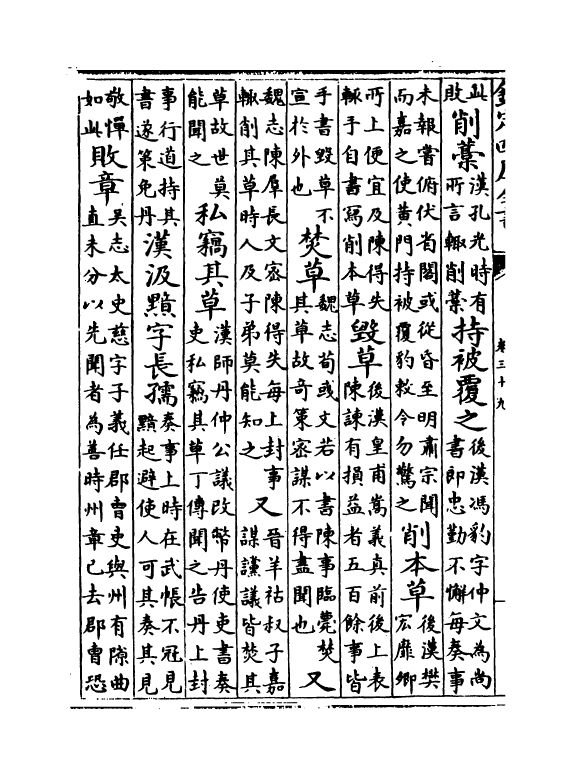 欽定四庫全書
卷三十九
此敗削藁漢孔光時有所言輙削藁持被覆之後漢馮豹字仲文為尚書郎忠勤不懈每奏事
未報嘗俯伏省閣或從昏至明肅宗聞而嘉之使黃門持被覆豹敕令勿驚之削本草後漢樊宏靡卿
所上便宜及陳得失輙手自書寫削本草毀草後漢皇甫嵩義真前後上表陳諫有損益者五百餘事皆
手書毀草不宣於外也焚草魏志荀或文若以書陳事臨薨焚其草故奇策密謀不得盡聞也又
魏志陳羣長文密陳得失每上封事輙削其草時人及子弟莫能知之又晉羊祜叔子嘉謀讜議皆焚其
草故世莫能聞之私竊其草漢師丹仲公議改幣丹使吏書奏吏私竊其草丁傅聞之告丹上封
事行道持其書遂策免丹漢汲黯字長孺奏事上時在武帳不冠見黯起避使人可其奏其見
敬憚如此敗章吳志太史慈字子義任郡曹吏與州有隙曲直未分以先聞者為善時州章已去郡曹恐